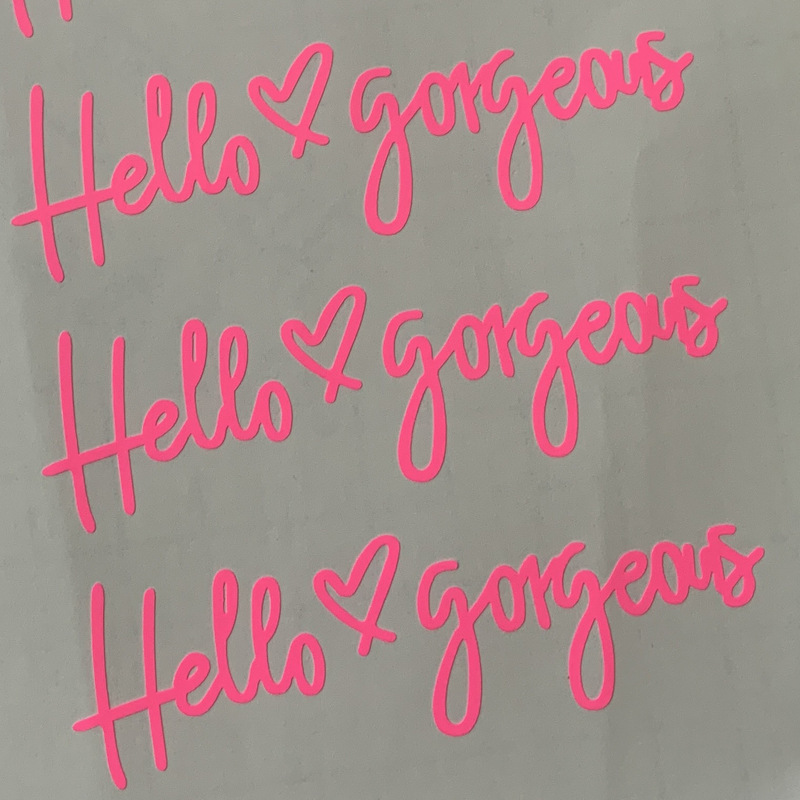 Hello gorgeous
Hello gorgeous
Hello gorgeous